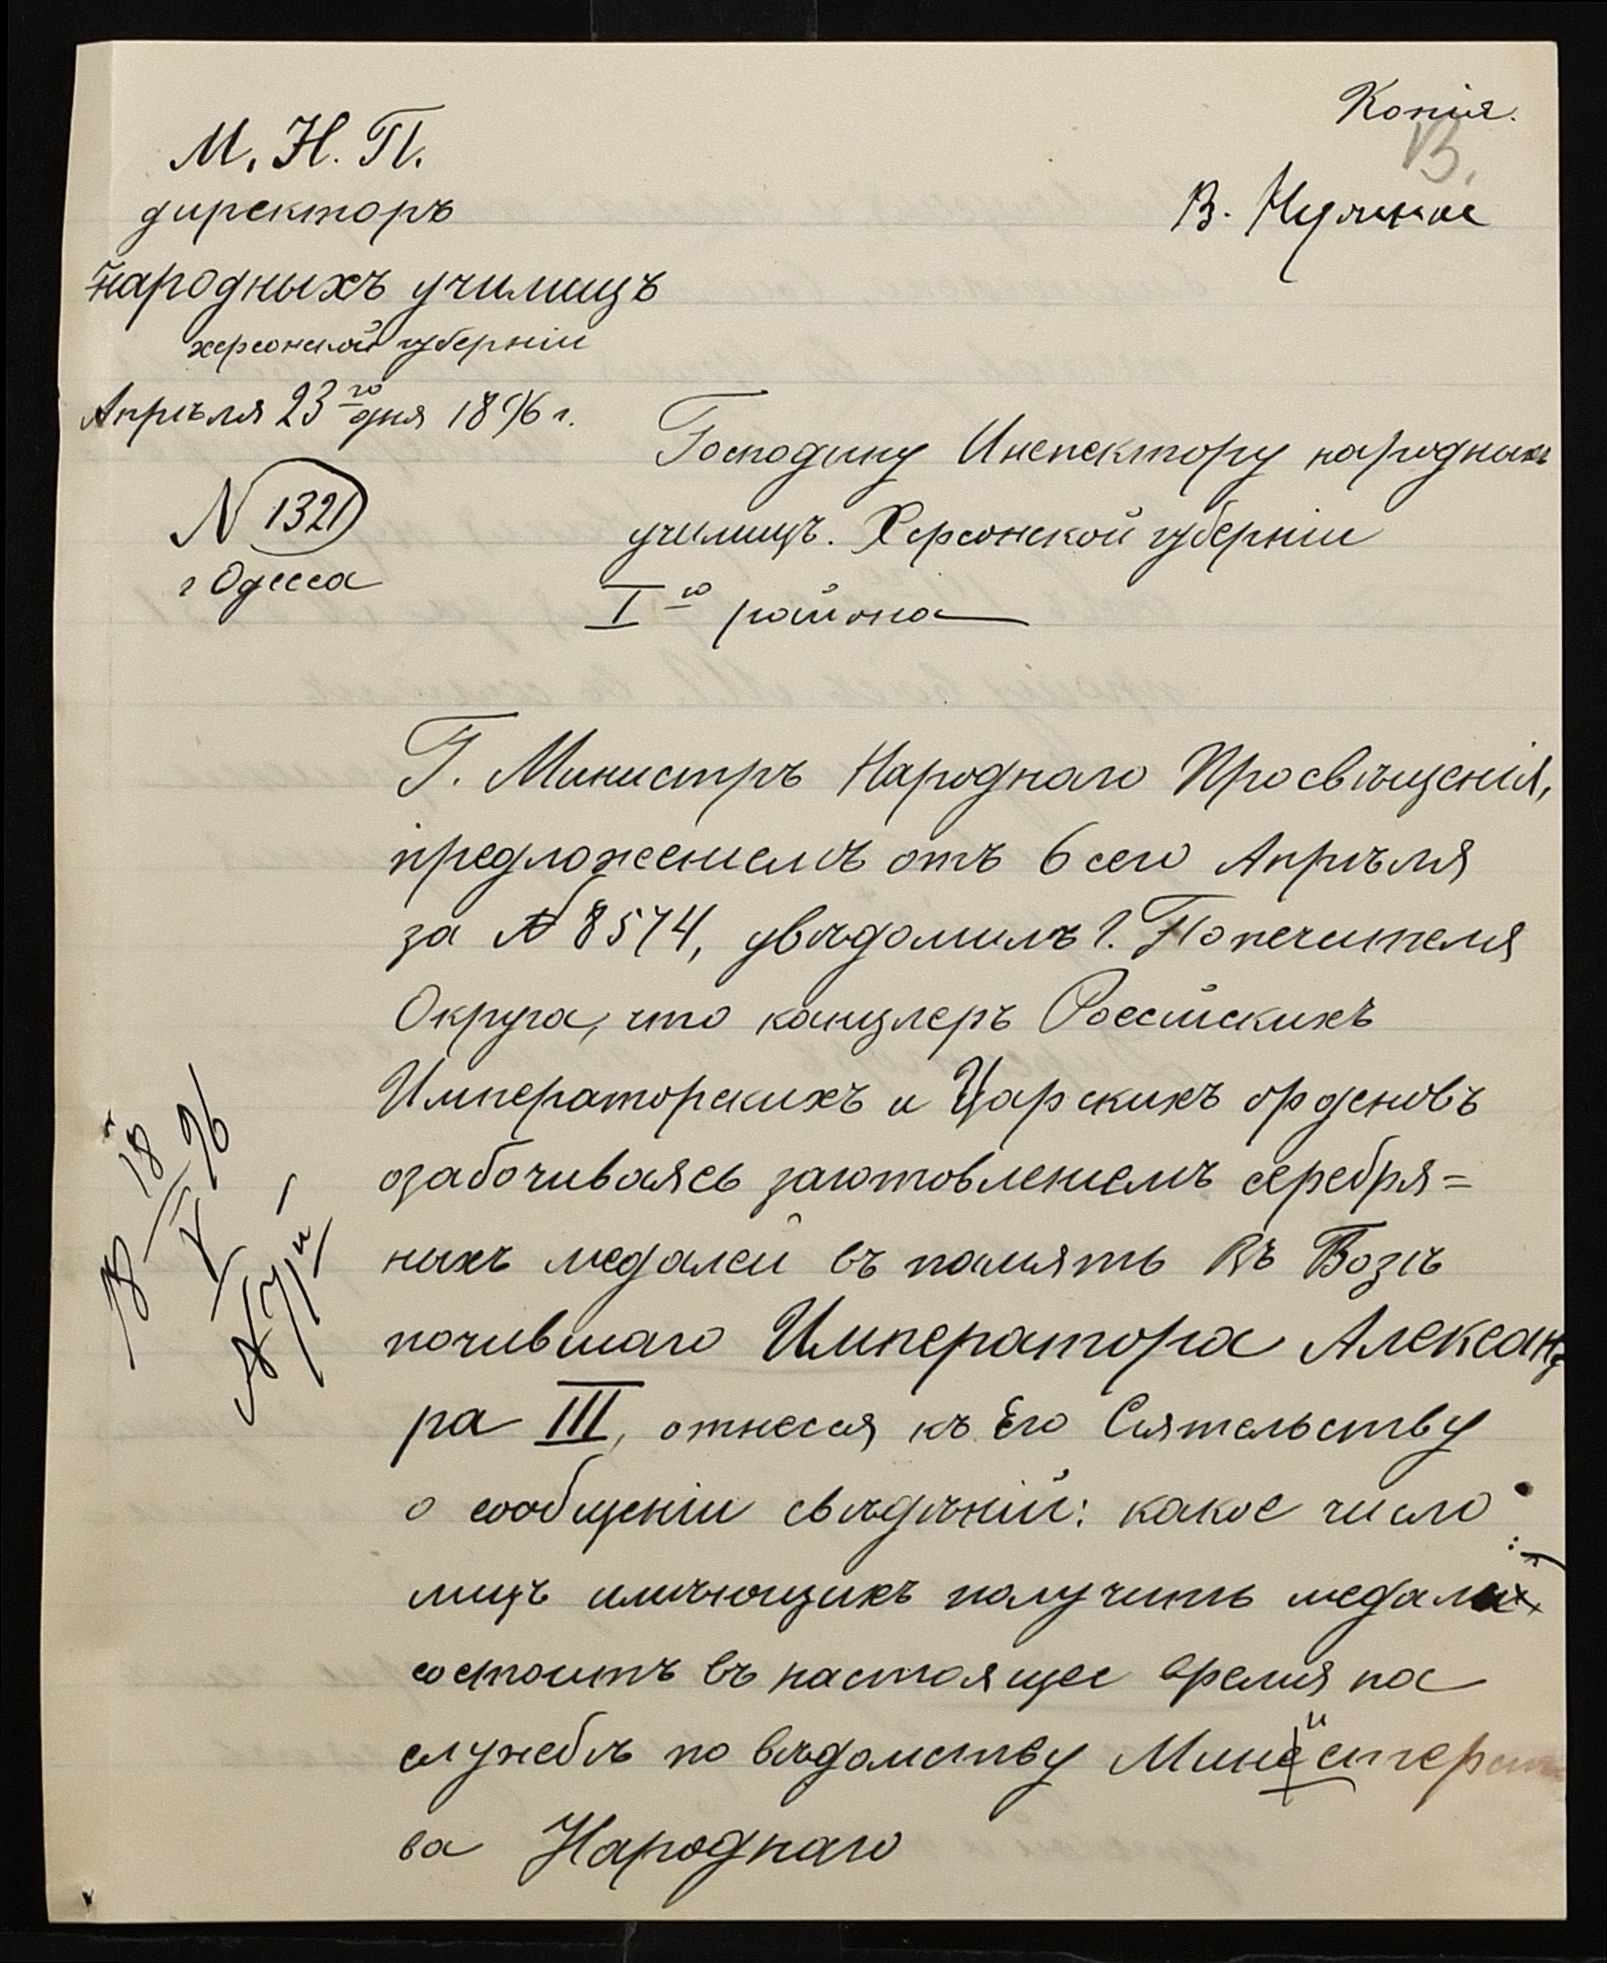 Копія.
В.
В. Нужное
М. Н. П.
директоръ
народныхъ училищъ
херсонской губерніи
Апрѣля 23го дня 1896 г.
N 1321
г Одесса
Господину Инспектору народныхъ
училищъ. Херсонской губерніи
Iго района
Г. Министръ Народнаго Просвѣщенія,
предложеніемъ отъ 6 сего Апрѣля
за № 8574, увѣдомилъ Г. Попечителя
Округа, что канцлеръ Россійскихъ
Императорскихъ и Царскихъ орденовъ
озабочиваясь заготовленіемъ серебря=
ныхъ медалей въ память Въ Бозѣ
почившаго Императора Александ
ра III, отнесся къ Его Сіятельству
о сообщеніи свѣдѣній: какое число
лицъ имѣющихъ получить медали
состоитъ въ настоящее время на
службѣ по вѣдомству Министерст
ва Народнаго
18
V
96